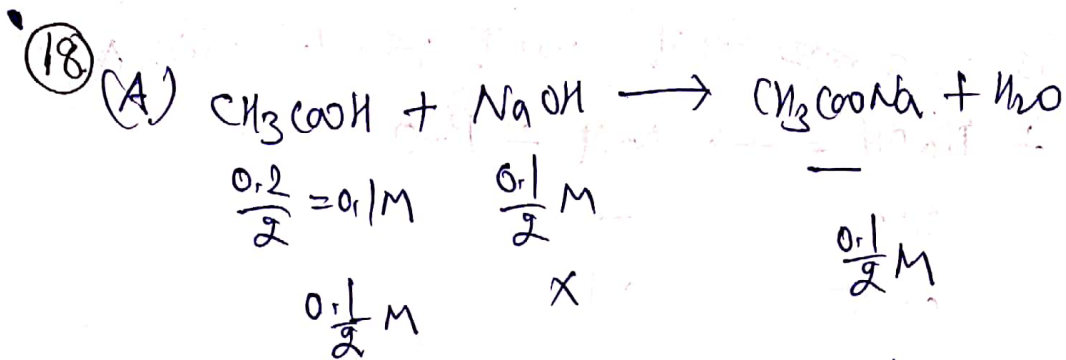 (18) (A) CH₃COOH + NaOH ⟶ CH₃COONa + H₂O
0.2/2 = 0.1M 0.1/2 M —
0.1/2 M × 0.1/2 M